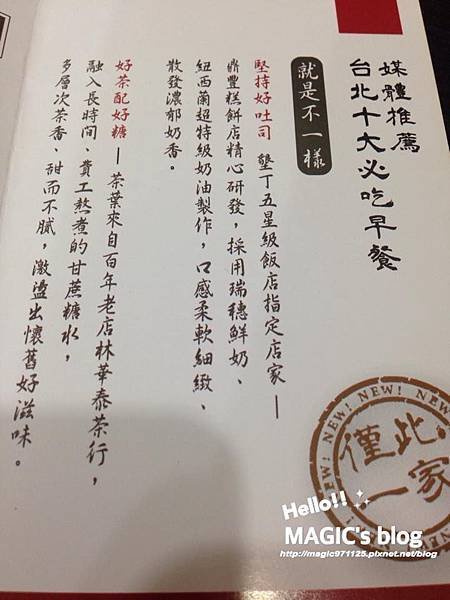 媒體推薦
台北十大必吃早餐
就是不一樣
堅持好吐司 墾丁五星級飯店指定店家—
鼎豐糕餅店精心研發,採用瑞穗鮮奶、
紐西蘭超特級奶油製作,口感柔軟細緻、
散發濃郁奶香。
好茶配好糖—茶葉來自百年老店林華泰茶行,
融入長時間、費工熬煮的甘蔗糖水,
多層次茶香、甜而不膩,激盪出懷舊好滋味。
NEW! NEW! NEW! NEW!
僅此
一家
Hello!!
MAGIC's blog
http://magic971125.pixnet.net/blog